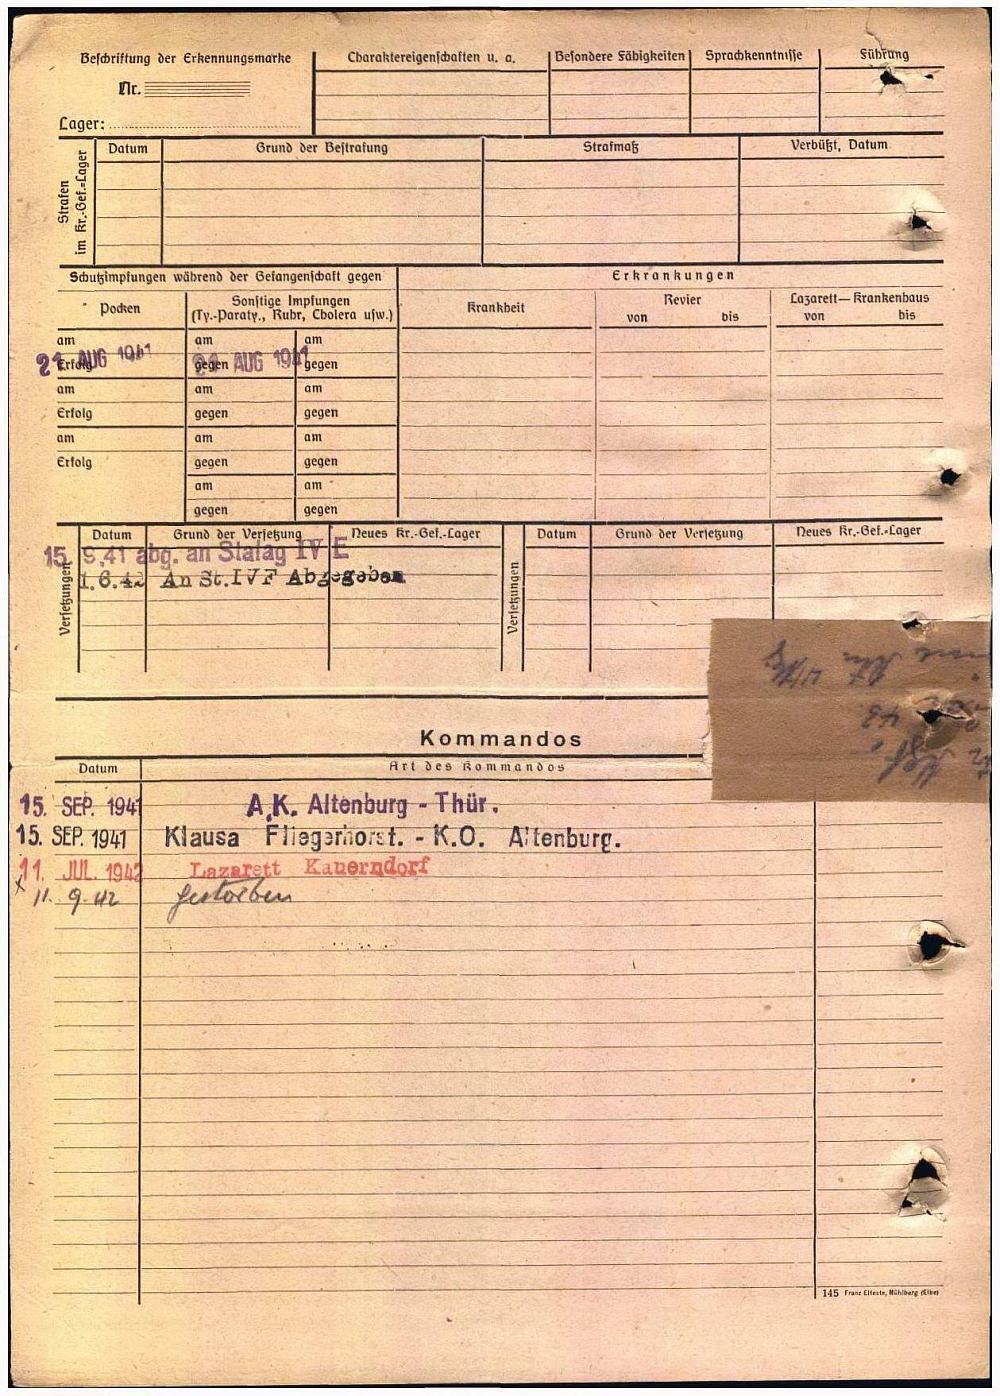 Beschriftung der Erkennungsmarke
Nr.
Lager:
Charaktereigenschaften u. a.
Besondere Fähigkeiten
Sprachkenntnisse
Führung
Strafen im Kr.-Gef.=Lager
Datum
Grund der Bestrafung
Strafmaß
Verbüßt, Datum
Schutzimpfungen während der Gefangenschaft gegen
Erkrankungen
Pocken
Sonstige Impfungen
(Ty.-Paraty., Ruhr, Cholera usw.)
Krankheit
Revier
von bis
Lazarett—Krankenhaus
von bis
am am am
21. AUG 1941 21. AUG 1941
Erfolg gegen gegen
am am am
Erfolg gegen gegen
am am am
Erfolg gegen gegen
am am
gegen gegen
Versetzungen
Datum Grund der Versetzung Neues Kr.-Gef.-Lager
Versetzungen
Datum Grund der Versetzung Neues Kr.-Gef.-Lager
15. 9.41 abg. an Stalag IV E
1.6.42 An St.IVF Abgegeben
43.
Kommandos
Datum Art des Kommandos
15. SEP. 1941 A.K. Altenburg - Thür.
15. SEP. 1941 Klausa Fliegerhorst. - K.O. Altenburg.
11. JUL. 1942 Lazarett Kauerndorf
x 11. 9. 42 gestorben
145 Franz Elteste, Mühlberg (Elbe)